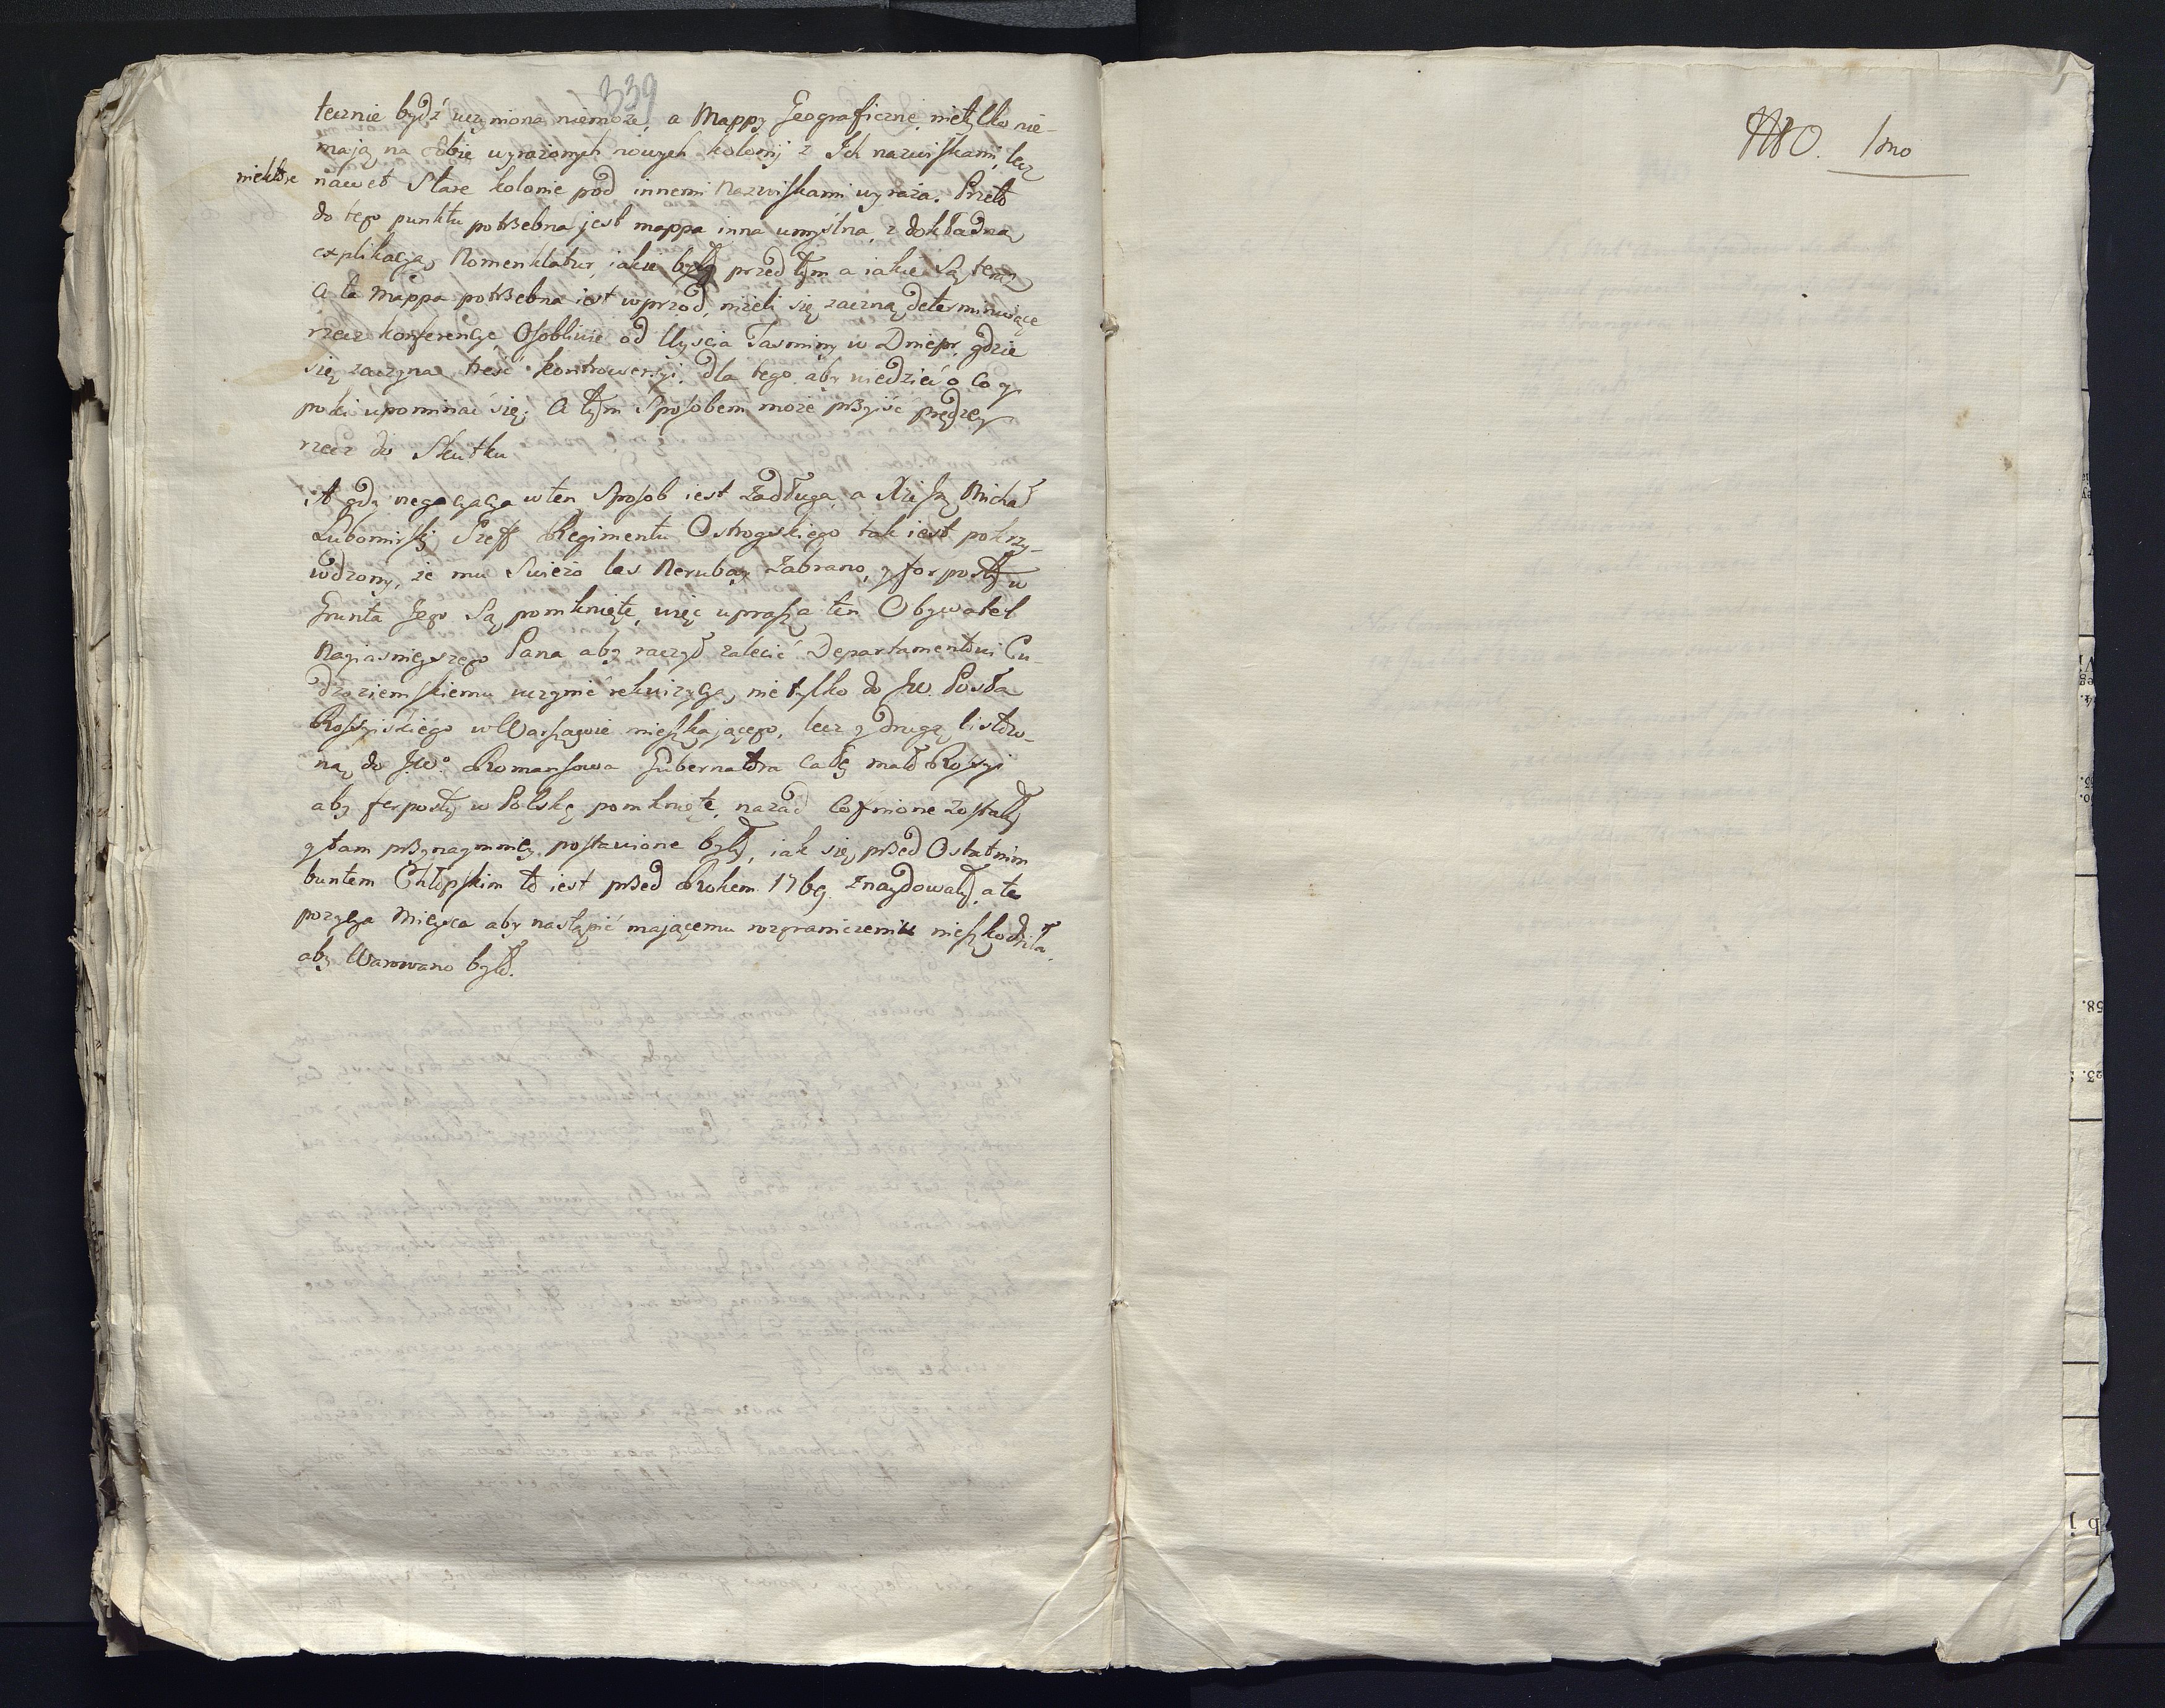 339
tecznie bydź uczyniona niemoże, a Mappy Geograficzne nietylko nie-
mają na sobie wyrażonych nowych kolonij z Ich nazwiskami, lecz
niektóre nawet Stare kolonie pod innemi Nazwiskami wyraża. Przeto
do tego punktu potrzebna jest mappa inna umyślna, z dokładną
explikacyą Nomenklatur, jakie były przed tym a iakie Są teraz
A ta Mappa potrzebna iest wprzod, nieżeli się zaczną determinuiące
rzecz konferencye Osobliwie od Uyscia Tasminy w Dniepr, gdzie
się zaczyna treść kontrowersyi, dla tego aby wiedzieć o co y
poki upominać się; A tym Sposobem może przyiść prędzey
rzecz do Skutku
A gdy negocyacya w ten Sposob iest Zadługa, a Xże Jmć Michał
Lubomirski Szeff Regimentu Ostrogskiego tak iest pokrzy-
wdzony, że mu Swieżo las Nerubay Zabrano, y forposty w
Grunta Jego Są pomknięte, więc uprasza ten Obywatel
Nayiasnieyszego Pana aby raczył zalecić Departamentowi Cu-
dzoziemskiemu uczynić rekwizycyą, nie tylko do JW. Posła
Rossyiskiego w Warszawie mieszkającego, lecz y drugą listow-
ną do JWo Romansowa Gubernatora całey mało Rossyi
aby forposty w Polskę pomknięte, nazad Cofnione Zostały
y tam przynaymniey postawione były, iak się przed Ostatnim
buntem Chłopskim to iest przed Rokem 1769. Znaydowały, a ta
pozycya Mieysca aby nastąpić mającemu rozgraniczeniu nieszkodziła,
aby Warowano było.
No. 1mo